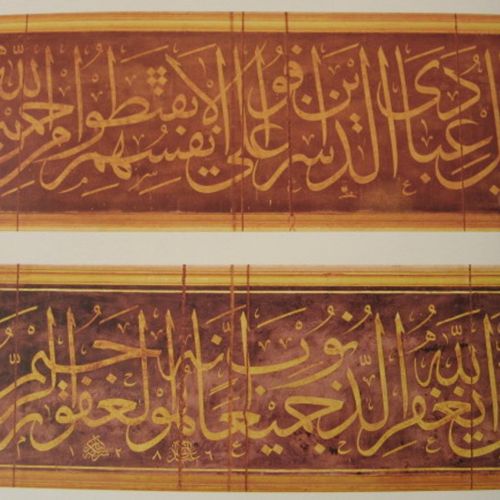 عبادي الذين اسرفوا على انفسهم لا تقنطوا من رحمة الله
الله يغفر الذنوب جميعا انه هو الغفور الرحيم